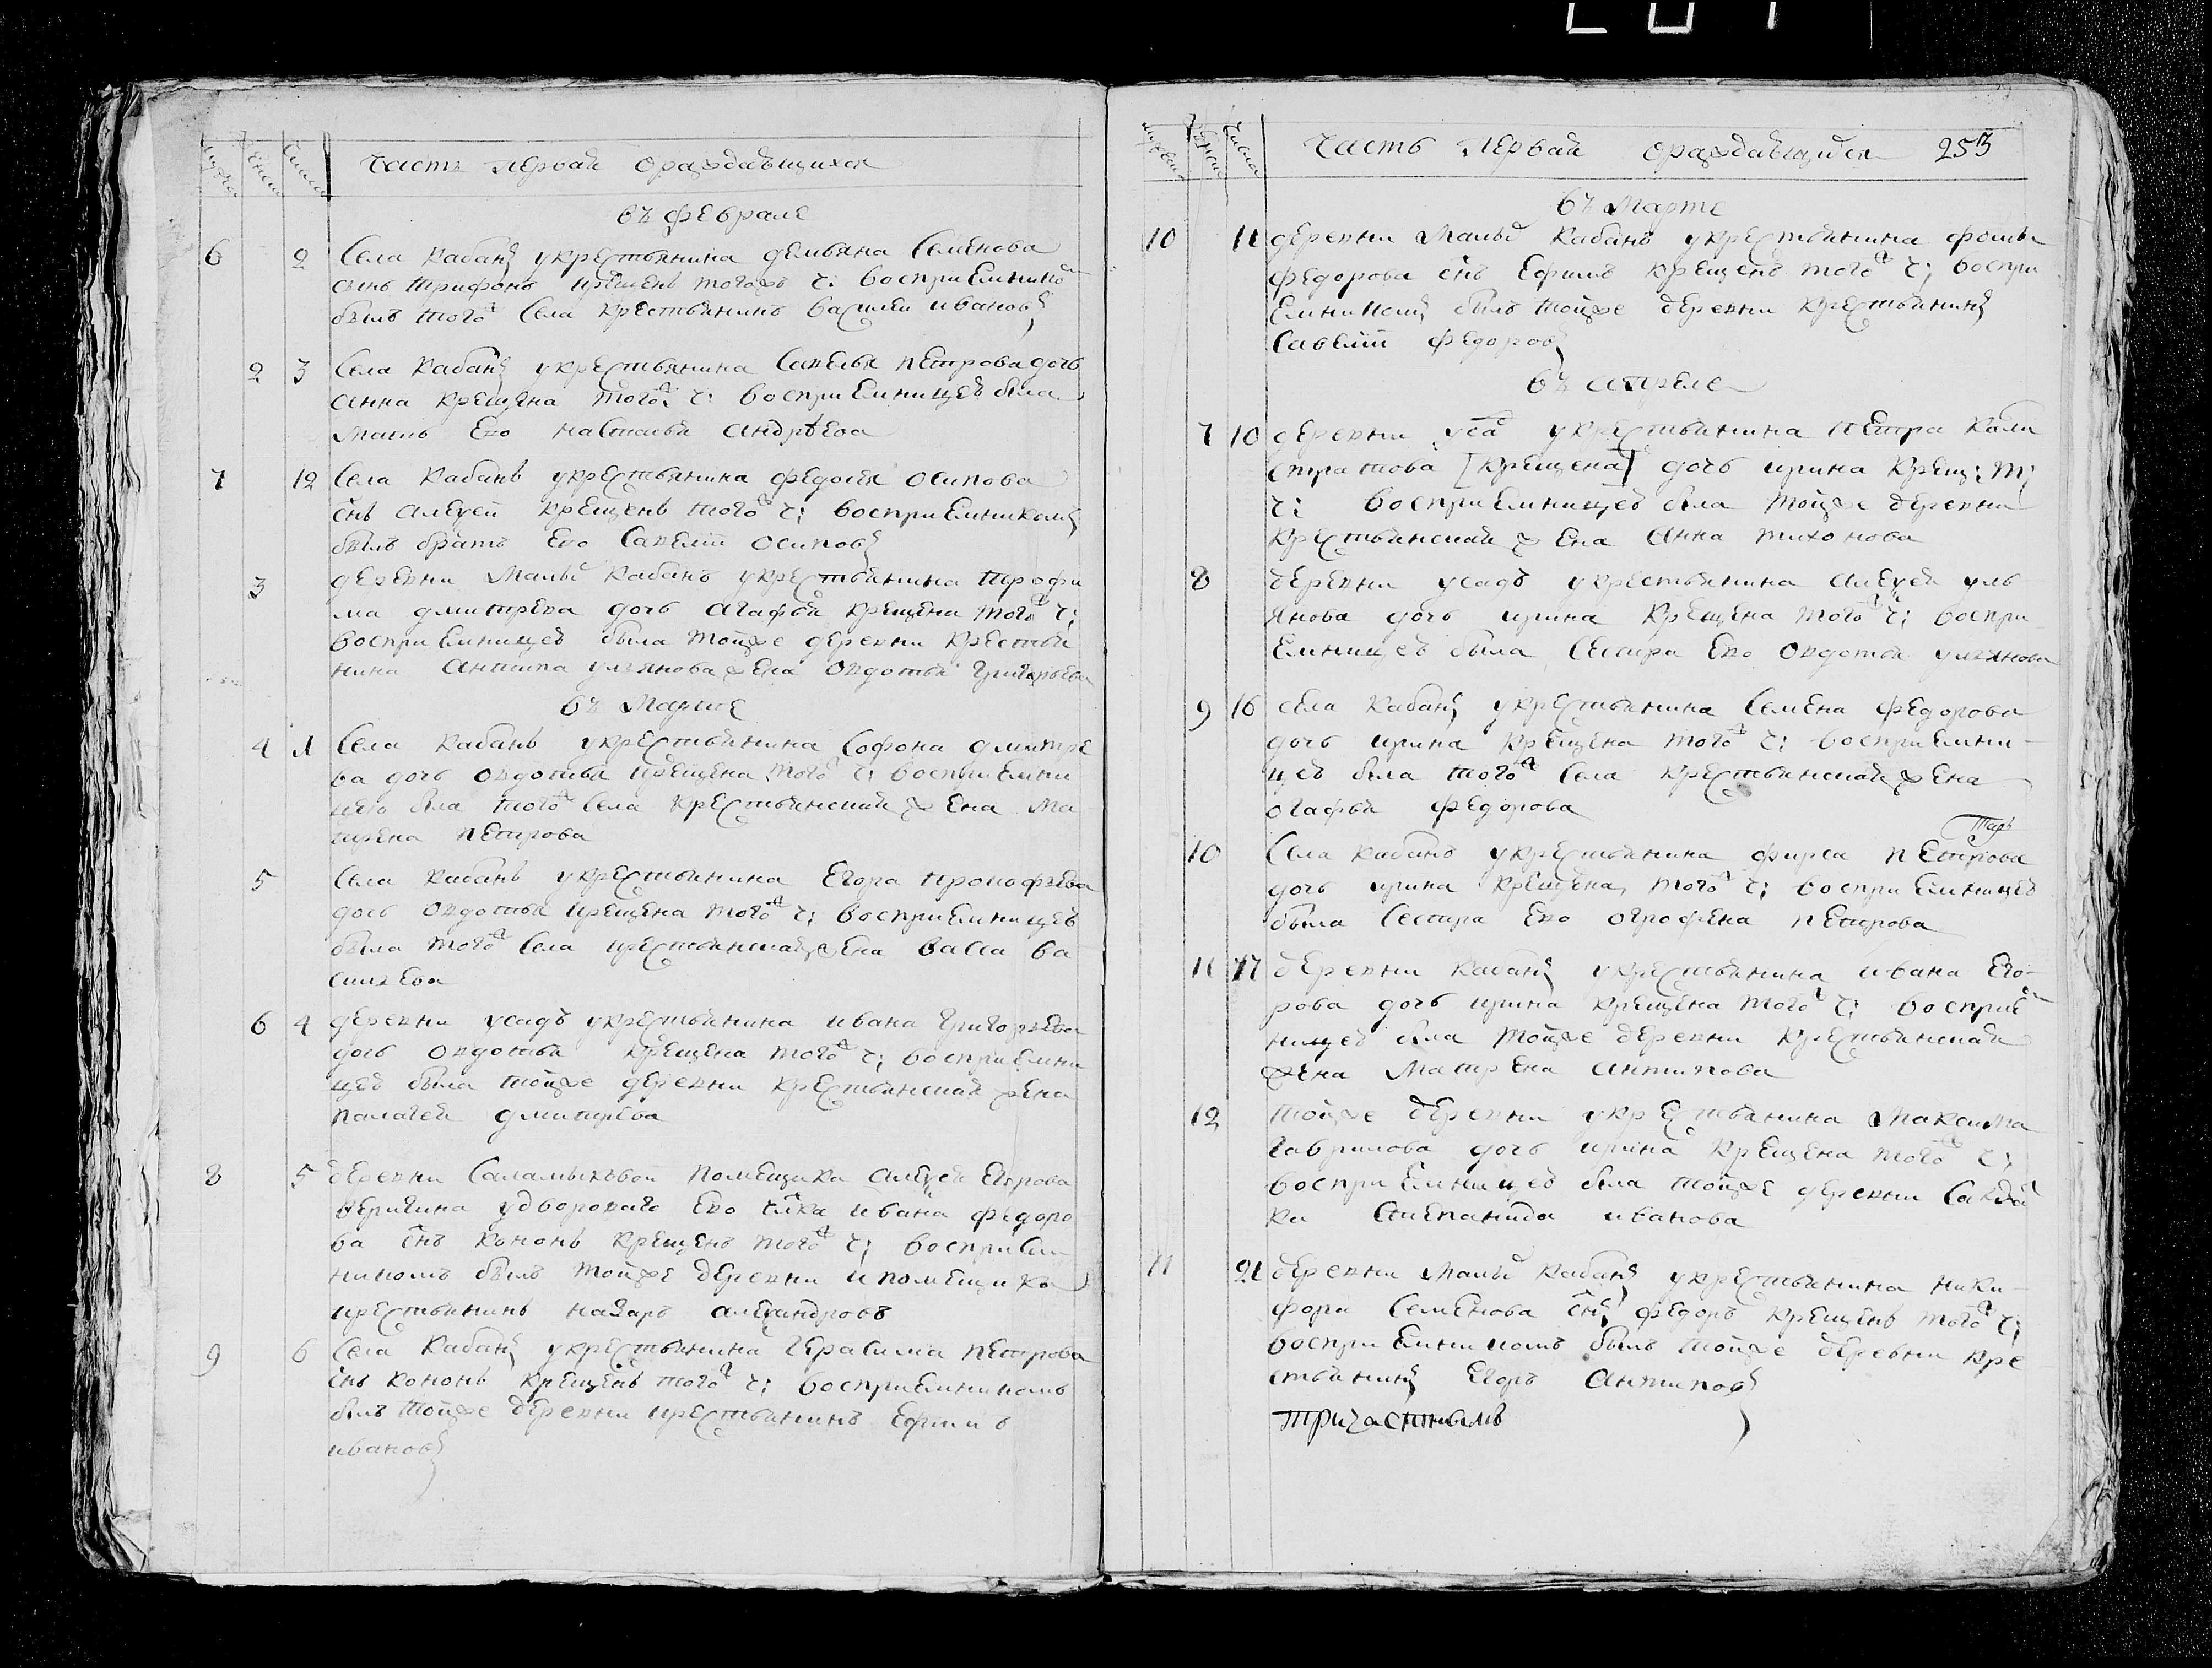 мужеска
женска
числа
часть первая ораждающихся
въ феврале
6 2 Села Кабанъ укрестьянина демьяна Семенова
сынъ трифонъ крещенъ тогожъ ч: восприемником
былъ того ж Села крестьянинъ василеи ивановъ
2 3 Села Кабанъ укрестьянина Савелья петрова дочь
анна крещена того ж ч: восприемницеъ была
мать Ево настасья андрѣева
7 12 Села Кабанъ укрестьянина федосѣя осипова
снъ алеѯеи крещенъ того ж ч; восприемникомъ
былъ братъ Ево Савелиі осиповъ
3 деревни малыѣ кабанъ укрестьянина трофи
ма дмитрева дочь агафья крещена того ж ч;
восприемницеъ была тойже деревни крестья
нина антипа ульянова жена овдотья григорьева
въ марте
4 1 Села кабанъ укрестьянина Софона дмитре
ва дочь овдотья крещена того ж ч; восприемни
цею была того ж Села крестьянская жена ма
трена петрова
5 Села кабанъ укрестьянина Егора прокофьева
дочь овдотья крещена того ж ч; восприемницеъ
была того ж Села крестьянская жена васса ва
сильева
6 4 деревни усадъ укрестьянина ивана григорьева
дочь овдотья крещена того ж ч; восприемни
цеъ была тойже деревни крестьянская жена
палагея дмитрева
8 5 деревни Саламыковои помещика алеѯея Егорова
веригина удворового Ево члка ивана федоро
ва снъ кононъ крещенъ того ж ч; восприем
никомъ былъ тойже деревни ипомещика
крестьянинъ назаръ алеѯандровъ
9 6 Села Кабанъ укрестьянина герасима петрова
снъ кононъ крещенъ того ж ч; восприемникомъ
былъ тойже деревни крестьянинъ Ефимъ
ивановъ
мужеска
женска
числа
часть первая ораждающихся 253
въ марте
10 11 деревни малыѣ кабанъ укрестьянина фомы
федорова снъ Ефимъ крещенъ того ж ч; воспри
емникомъ былъ тойже деревни крестьянинъ
Савелиі федоровъ
въ апреле
7 10 деревни усад укрестьянина петра кали
стратова [крещена] дочь ирина крещ: т;
ч: восприемницеъ была тойже деревни
крестьянская жена анна тихонова
8 деревни усадъ укрестьянина алеѯея уль
янова дочь ирина крещена того ж ч; воспри
емницеъ была Сестра Ево овдотья ульянова
9 16 села кабанъ укрестьянина Семена федорова
дочь ирина крещена того ж ч; восприемни
цеъ была того ж Села крестьянская жена
агафья федорова
10 Села кабанъ укрестьянина фирса петрова
дочь ирина крещена того ж ч; восприемницеъ
была Сестра Ево огрофена петрова
11 17 деревни кабанъ укрестьянина ивана Его
рова дочь ирина крещена того ж ч; восприем
ницеъ была тойже деревни крестьянская
жена матрена антипова
12 тойже деревни укрестьянина максима
гаврилова дочь ирина крещена того ж ч;
восприемницеъ была тойже деревни Салдат
ка Степанида иванова
11 21 деревни малыѣ кабанъ укрестьянина ники
фора Семенова снъ федоръ крещенъ того ж ч;
восприемникомъ былъ тойже деревни кре
стьянинъ Егоръ антиповъ